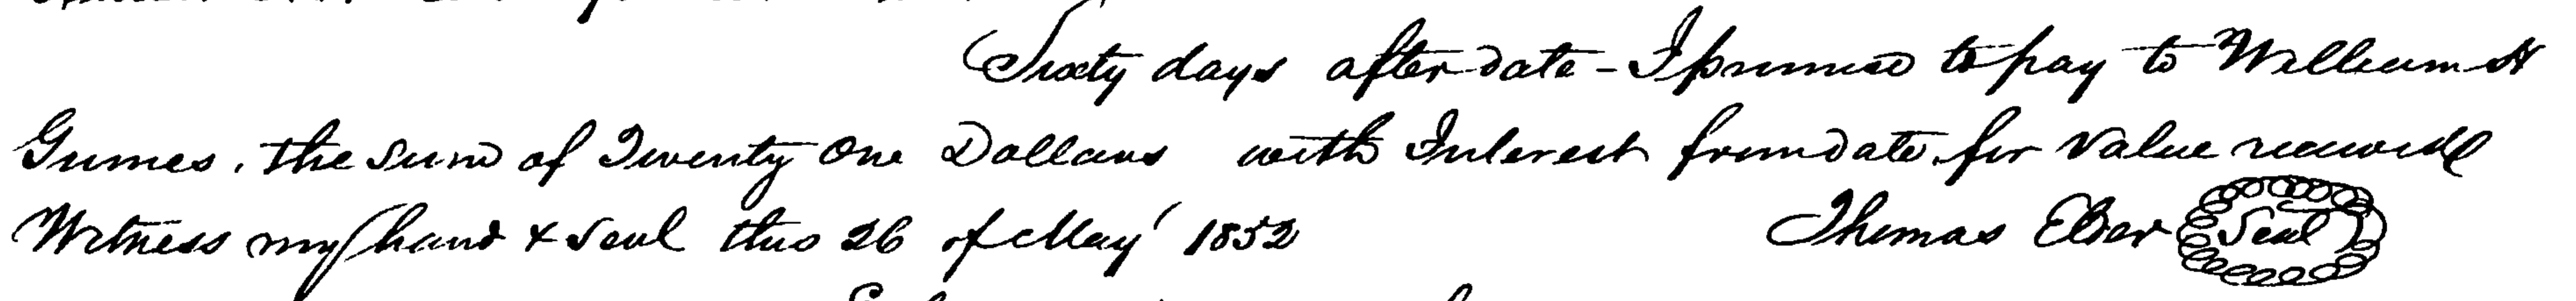 Sixty days after date - I promise to pay to William H
Gumes, the Sum of Twenty One Dollars with Interest from date for Value received
Witness my hand & Seal this 26 of May 1852 Thomas Elder Seal